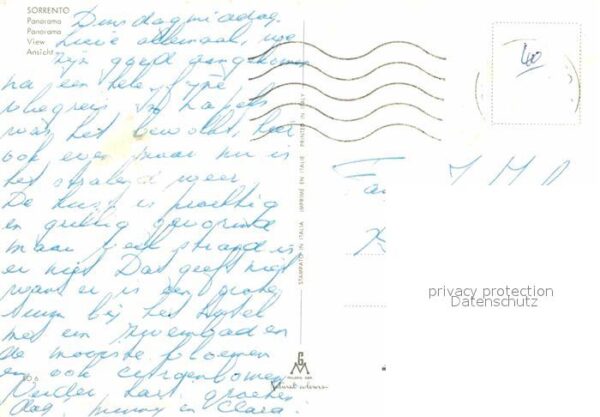 SORRENTO
Panorama
Panorama
View
Ansicht
Dinsdagmiddag.
Lieve allemaal, we
zijn goed aangekomen
na een hele fijne
vliegreis. In Napels
was het bewolkt, hier
ook even maar nu is
het stralend weer
De kust is prachtig
en grillig gevormd
maar veel strand is
er niet Dat geeft niet
want er is een grote
tuin bij het hotel
met een zwembad en
de mooiste bloemen
en ook citroenbomen
Verder hart. groeten
dag. en Clara.
STAMPATO IN ITALIA IMPRIMÉ EN ITALIE PRINTED IN ITALY
40
Fam
privacy protection
Datenschutz